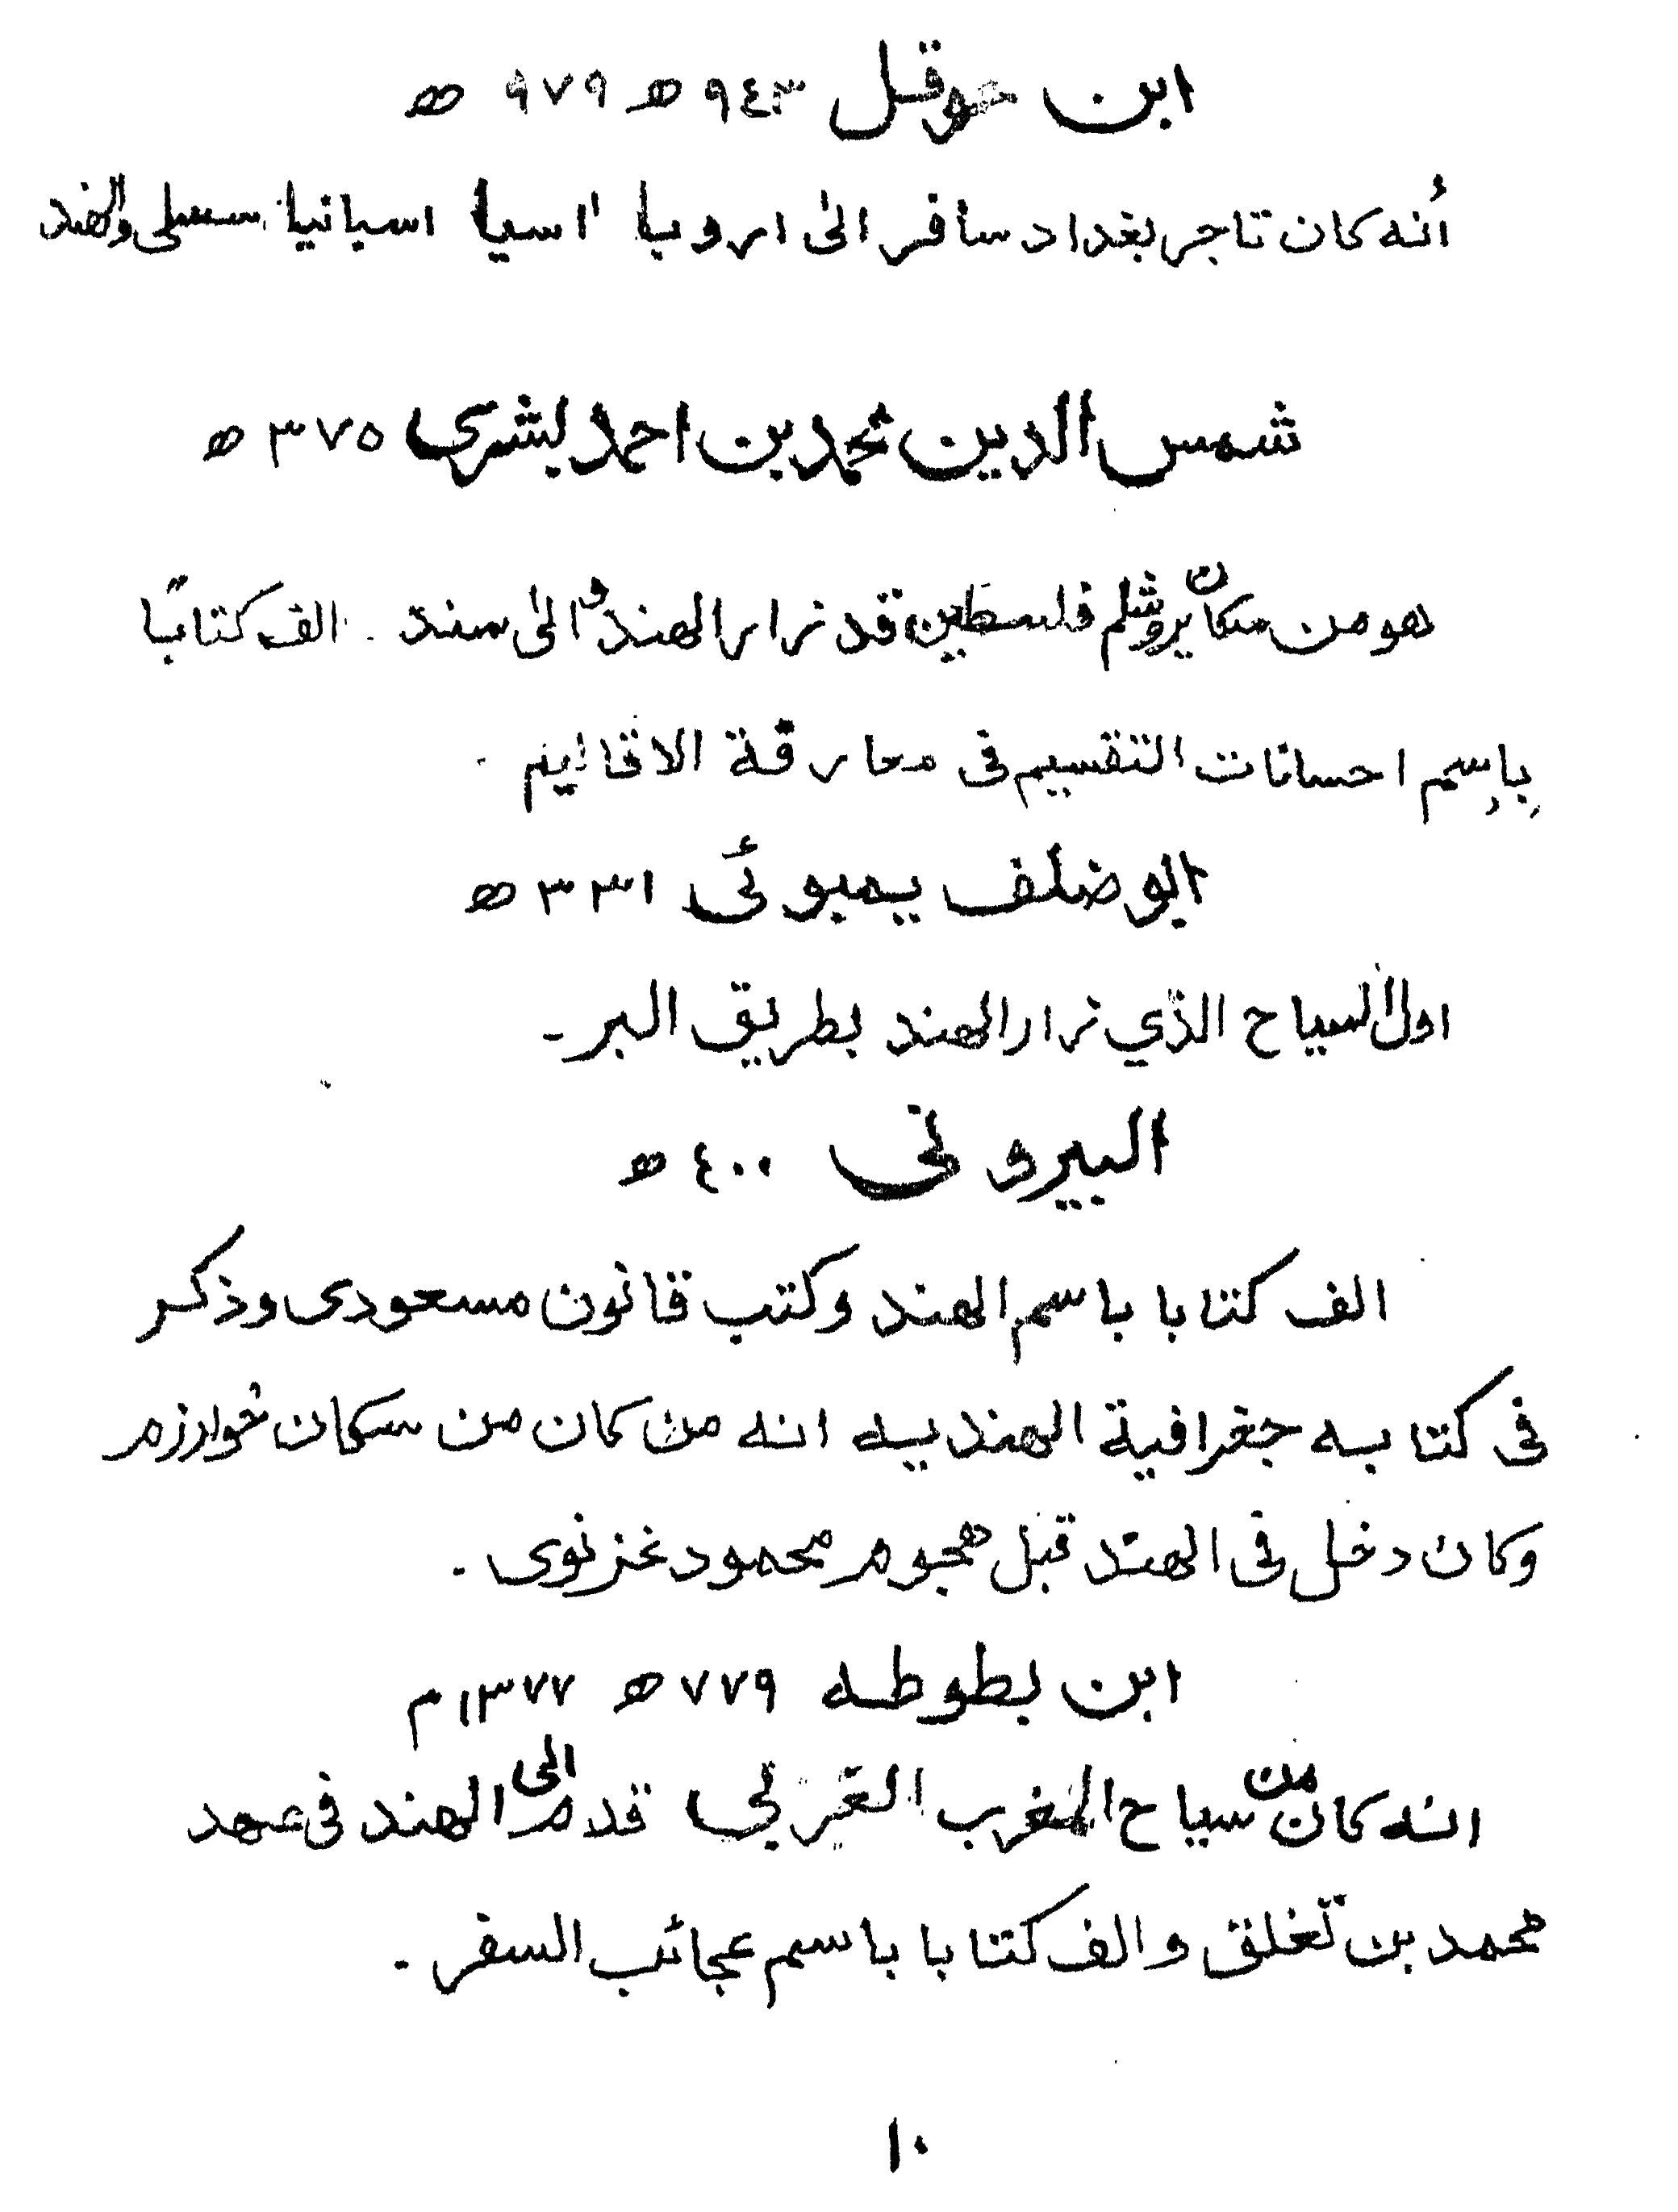 ابن حوقل ٩٤٣ ھ ٩٧٩ ھ
أنه كان تاجر بغداد سافر الى اروبا اسيا اسبانيا سسلى والهند
شمس الدين محمد بن احمد بشرى ٣٧٥ ھ
هو من سكان يروشلم فلسطين قد زار الهند و الى سند . الف كتابًا
بإسم احسانات التقسيم فى معارفة الاقاليم .
ابو ضلف يمبوئى ٣٣١ ھ
اول السياح الذي زار الهند بطريق البر -
البيرونى ٤٠٠ ھ
الف كتابا باسم الهند وكتب قانون مسعودى وذكر
فى كتابه جغرافية الهنديه انه من كان من سكان خوارزم
وكان دخل فى الهند قبل هجوم محمود غزنوى .
ابن بطوطه ٧٧٩ ھ ١٣٧٧ م
انه كان من سياح المغرب العربي قدم الى الهند فى عهد
محمد بن تغلق و الف كتابا باسم عجائب السفر .
١٠